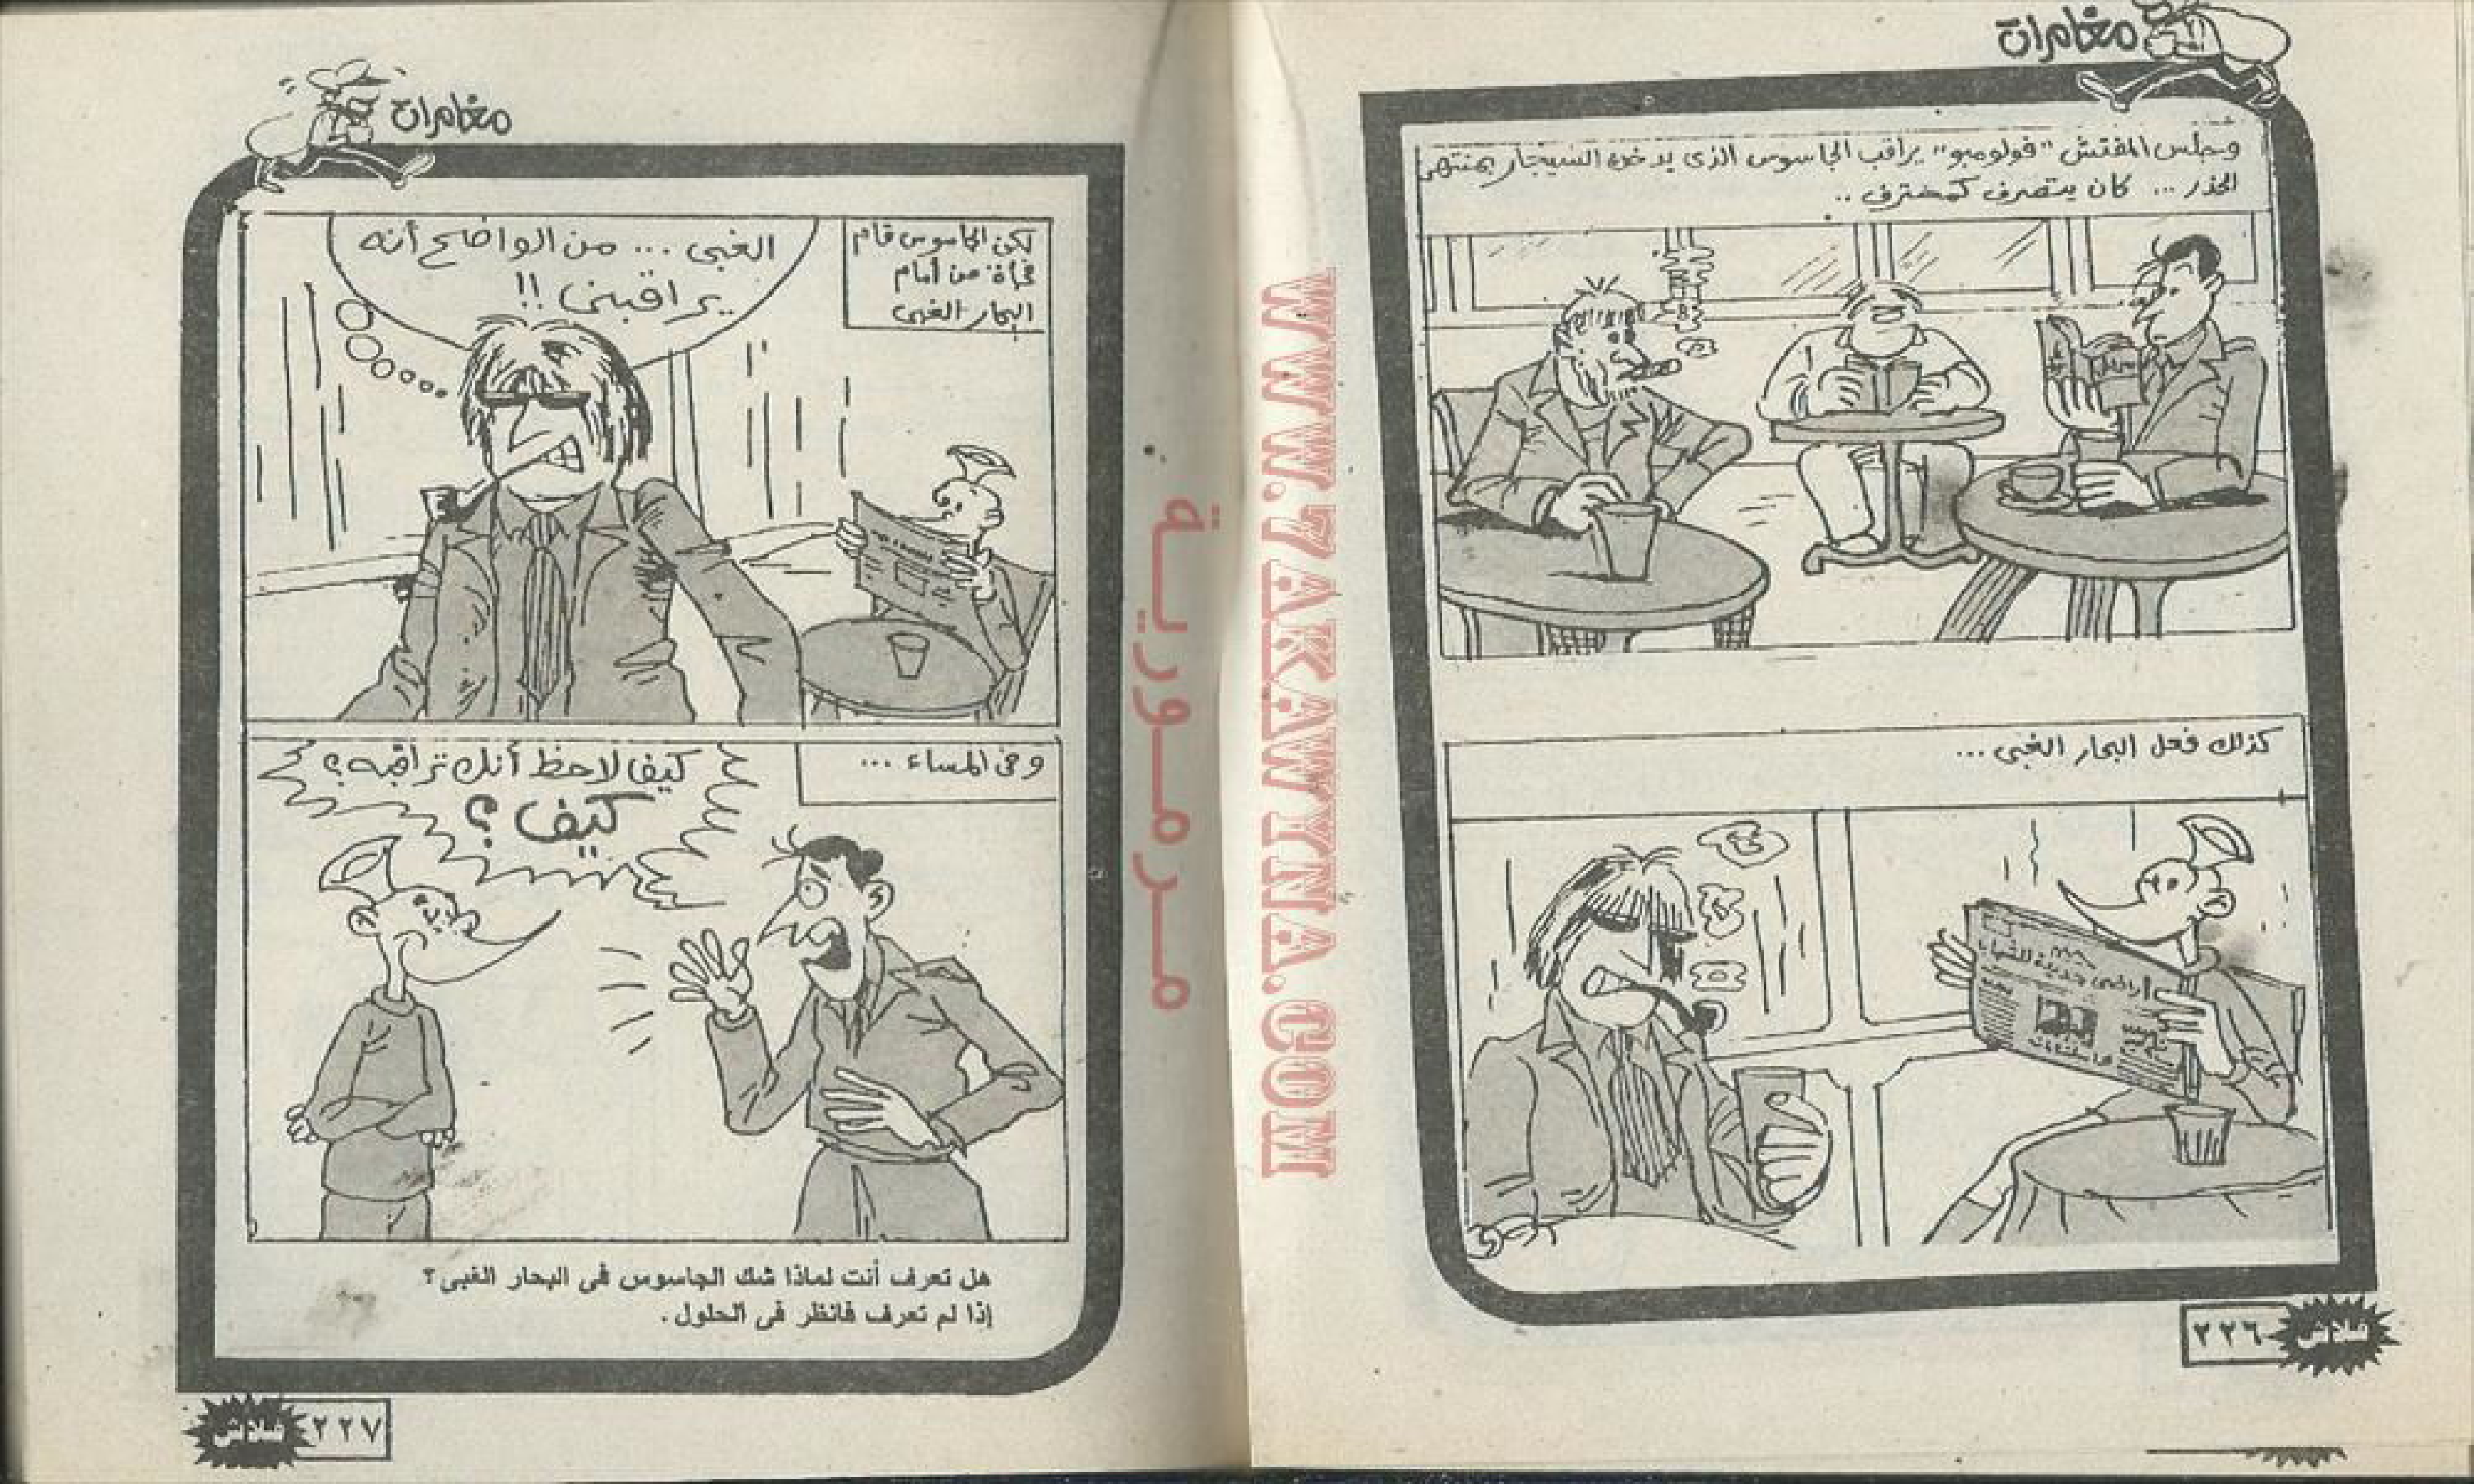 مغامرات
وجلس المفتش "فولومبو" يراقب الجاسوس الذى يدخن السيجار بمنتهى
الحذر ... كان يتصرف كمحترف ..
كذلك فعل البحار الغبى ...
أراضى جديدة للشباب
فلاش ٢٢٦
WWW.7AKAWITNA.COM
مرمورية
مغامرات
لكن الجاسوس قام
فجأة من أمام
البحار الغبى
الغبى ... من الواضح أنه
يراقبنى !!
وفى المساء ...
كيف لاحظ أنك تراقبه ؟
كيف ؟
هل تعرف أنت لماذا شك الجاسوس فى البحار الغبى ؟
إذا لم تعرف فانظر فى الحلول .
فلاش ٢٢٧